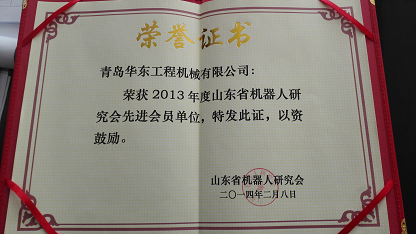 荣誉证书
青岛华东工程机械有限公司：
荣获2013年度山东省机器人研
究会先进会员单位，特发此证，以资
鼓励。
山东省机器人研究会
二〇一四年二月八日